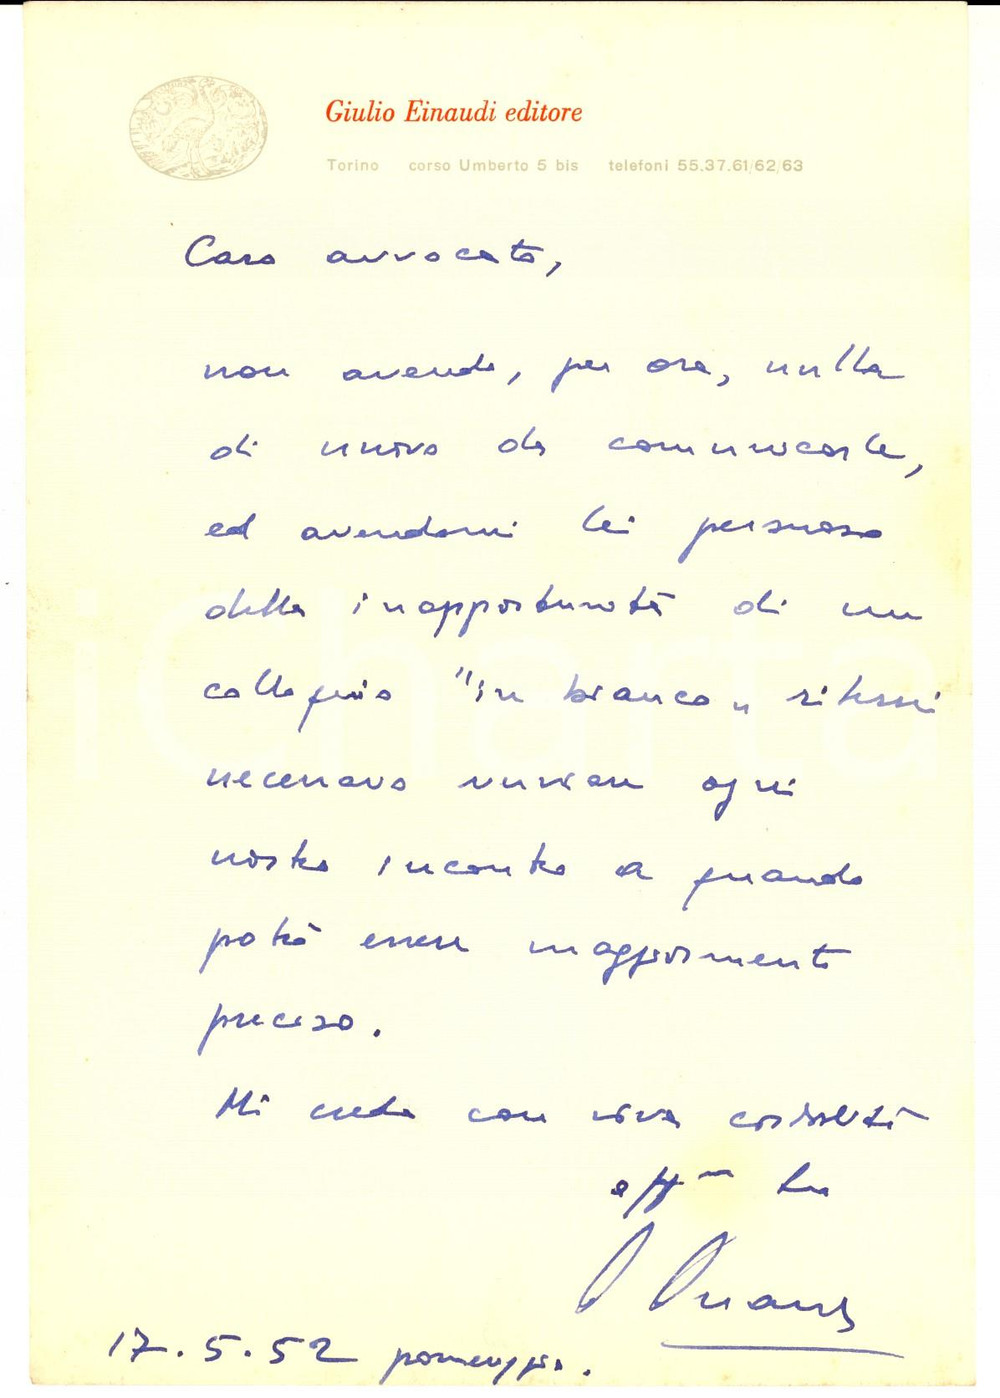 Giulio Einaudi editore
Torino corso Umberto 5 bis telefoni 55.37.61/62/63
Caro avvocato,
non avendo, per ora, nulla
di nuovo da comunicarle,
ed avendomi lei persuaso
della inopportunità di un
colloquio "in bianco„ ritessi
necessario rinviare ogni
nostro incontro a quando
potrò essere maggiormente
preciso.
Mi creda con viva cordialità
aff.mo Suo
Einaudi
17.5.52 pomeriggio.
iCharta